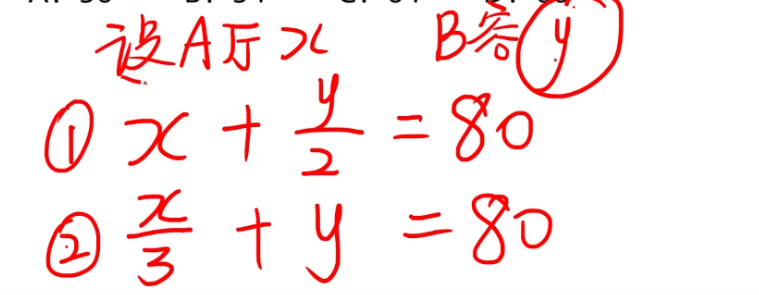 设A厅x B答y
① x + y/2 = 80
② x/3 + y = 80